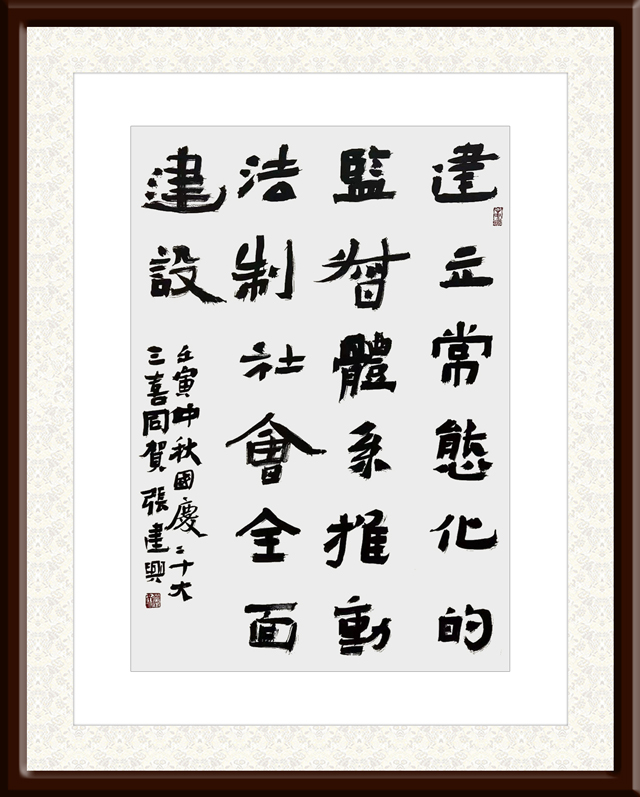 建立常態化的
監督體系推動
法制社會全面
建設
壬寅中秋國慶二十大
三喜同賀張建興